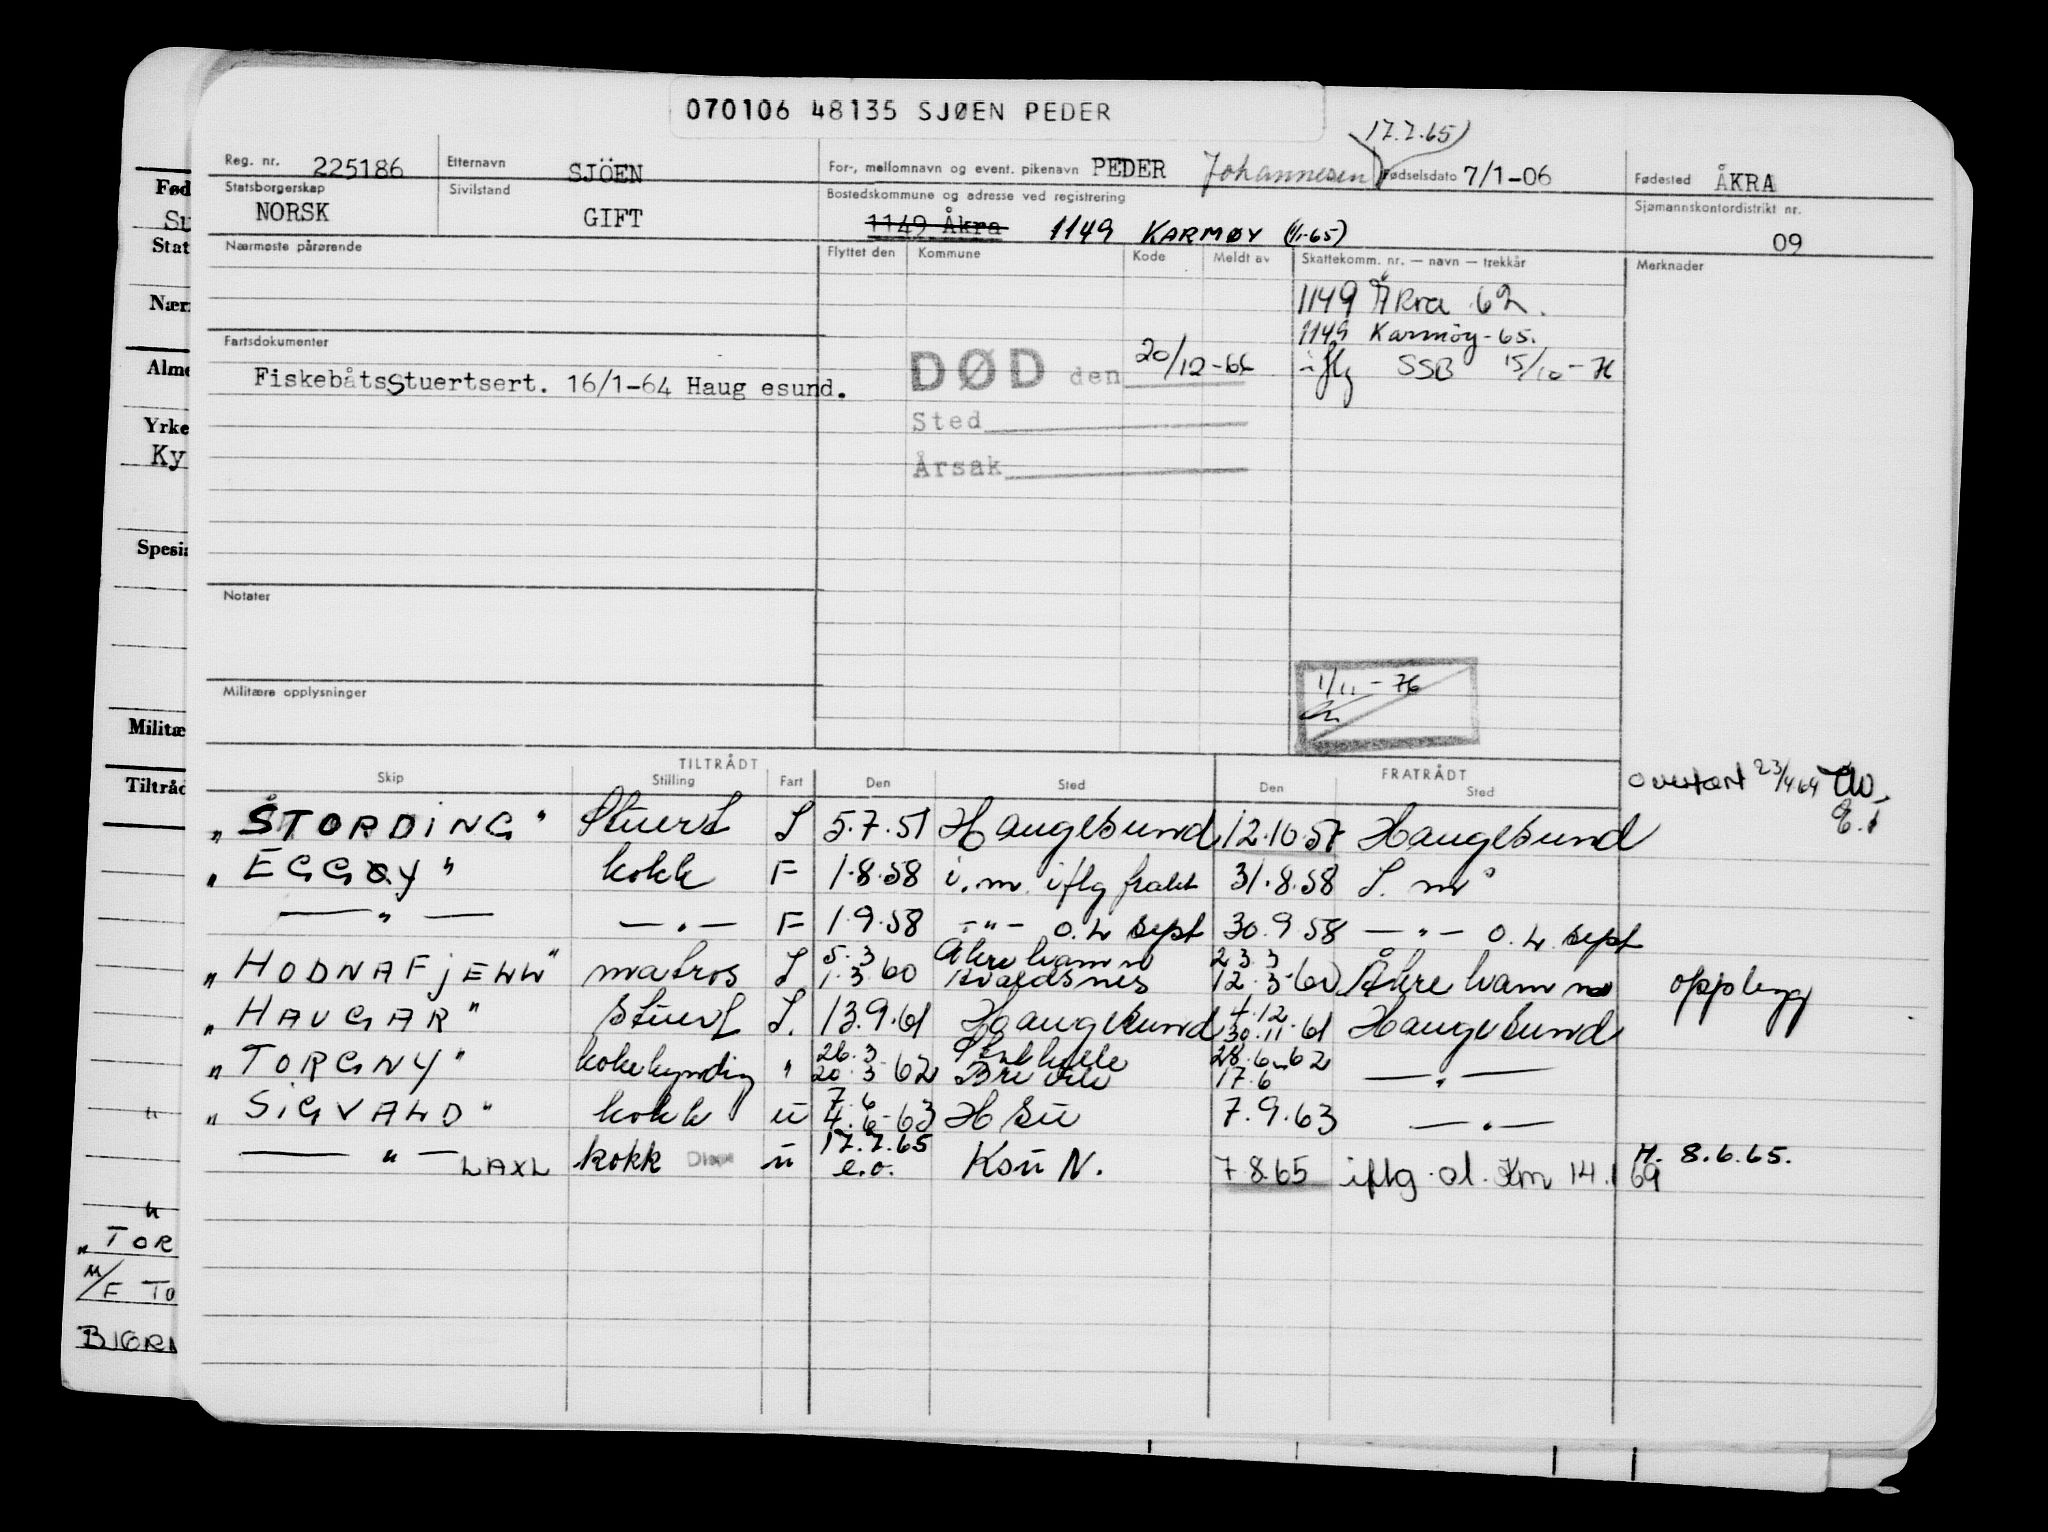 070106 48135 SJØEN PEDER
17.7.65)
Reg. nr. 225186 Etternavn SJÖEN For-, mellomnavn og event. pikenavn PEDER Johannesen Fødselsdato 7/1-06 Fødested ÅKRA
Statsborgerskap NORSK Sivilstand GIFT Bostedskommune og adresse ved registrering 1149 Åkra 1149 KARMØY (1/1-65) Sjømannskontordistrikt nr. 09
Nærmeste pårørende Flyttet den Kommune Kode Meldt av Skattekomm. nr. — navn — trekkår Merknader
1149 Åkra 62.
1149 Karmöy-65.
Fartsdokumenter
DØD den 20/12-66 iflg SSB 15/10-76
FiskebåtsStuertsert. 16/1-64 Haug esund.
Sted
Årsak
Notater
Militære opplysninger
1/11-76
TILTRÅDT FRATRÅDT
Skip Stilling Fart Den Sted Den Sted
overført 23/4 64
"STORDING" Stuert S 5.7.57 Haugesund 12.10.57 Haugesund
"EGGØY" kokk F 1.8.58 i.m. iflg frakt 31.8.58 S. m
— " — — " — F 1.9.58 - " - o.L sept 30.9.58 — " — o.L. sept
"HODNAFJELL" matros S 5.3 1.3.60 Åkrehamn Avaldsnes 23.3 12.3.60 Åkrehamn opplegg
"HAUGAR" Stuert S. 13.9.61 Haugesund 4.12 30.11.61 Haugesund
"TORGNY" kokkyndig " 26.3 20.3 62 Brevik 28.6-62 17.6 — " —
"SIGVALD" kokk u 7.6 4.6-63 H su 7.9.63 — " —
— " — LAXL kokk u 17.7.65 e.o. Ksu N. 7 8.65 iflg. ol. Km 14.1 69 H. 8.6.65.
Fød
Su
Stat
Nær
Alme
Yrke
Ky
Spesi
Militæ
Tiltråd
"TOR
M/F TO
BJØRN